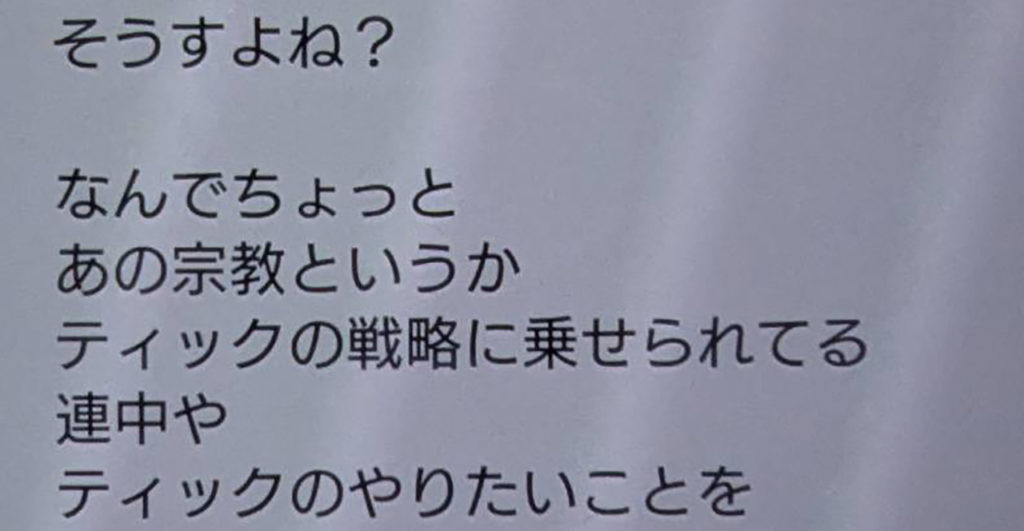 そうすよね？
なんでちょっと
あの宗教というか
ティックの戦略に乗せられてる
連中や
ティックのやりたいことを